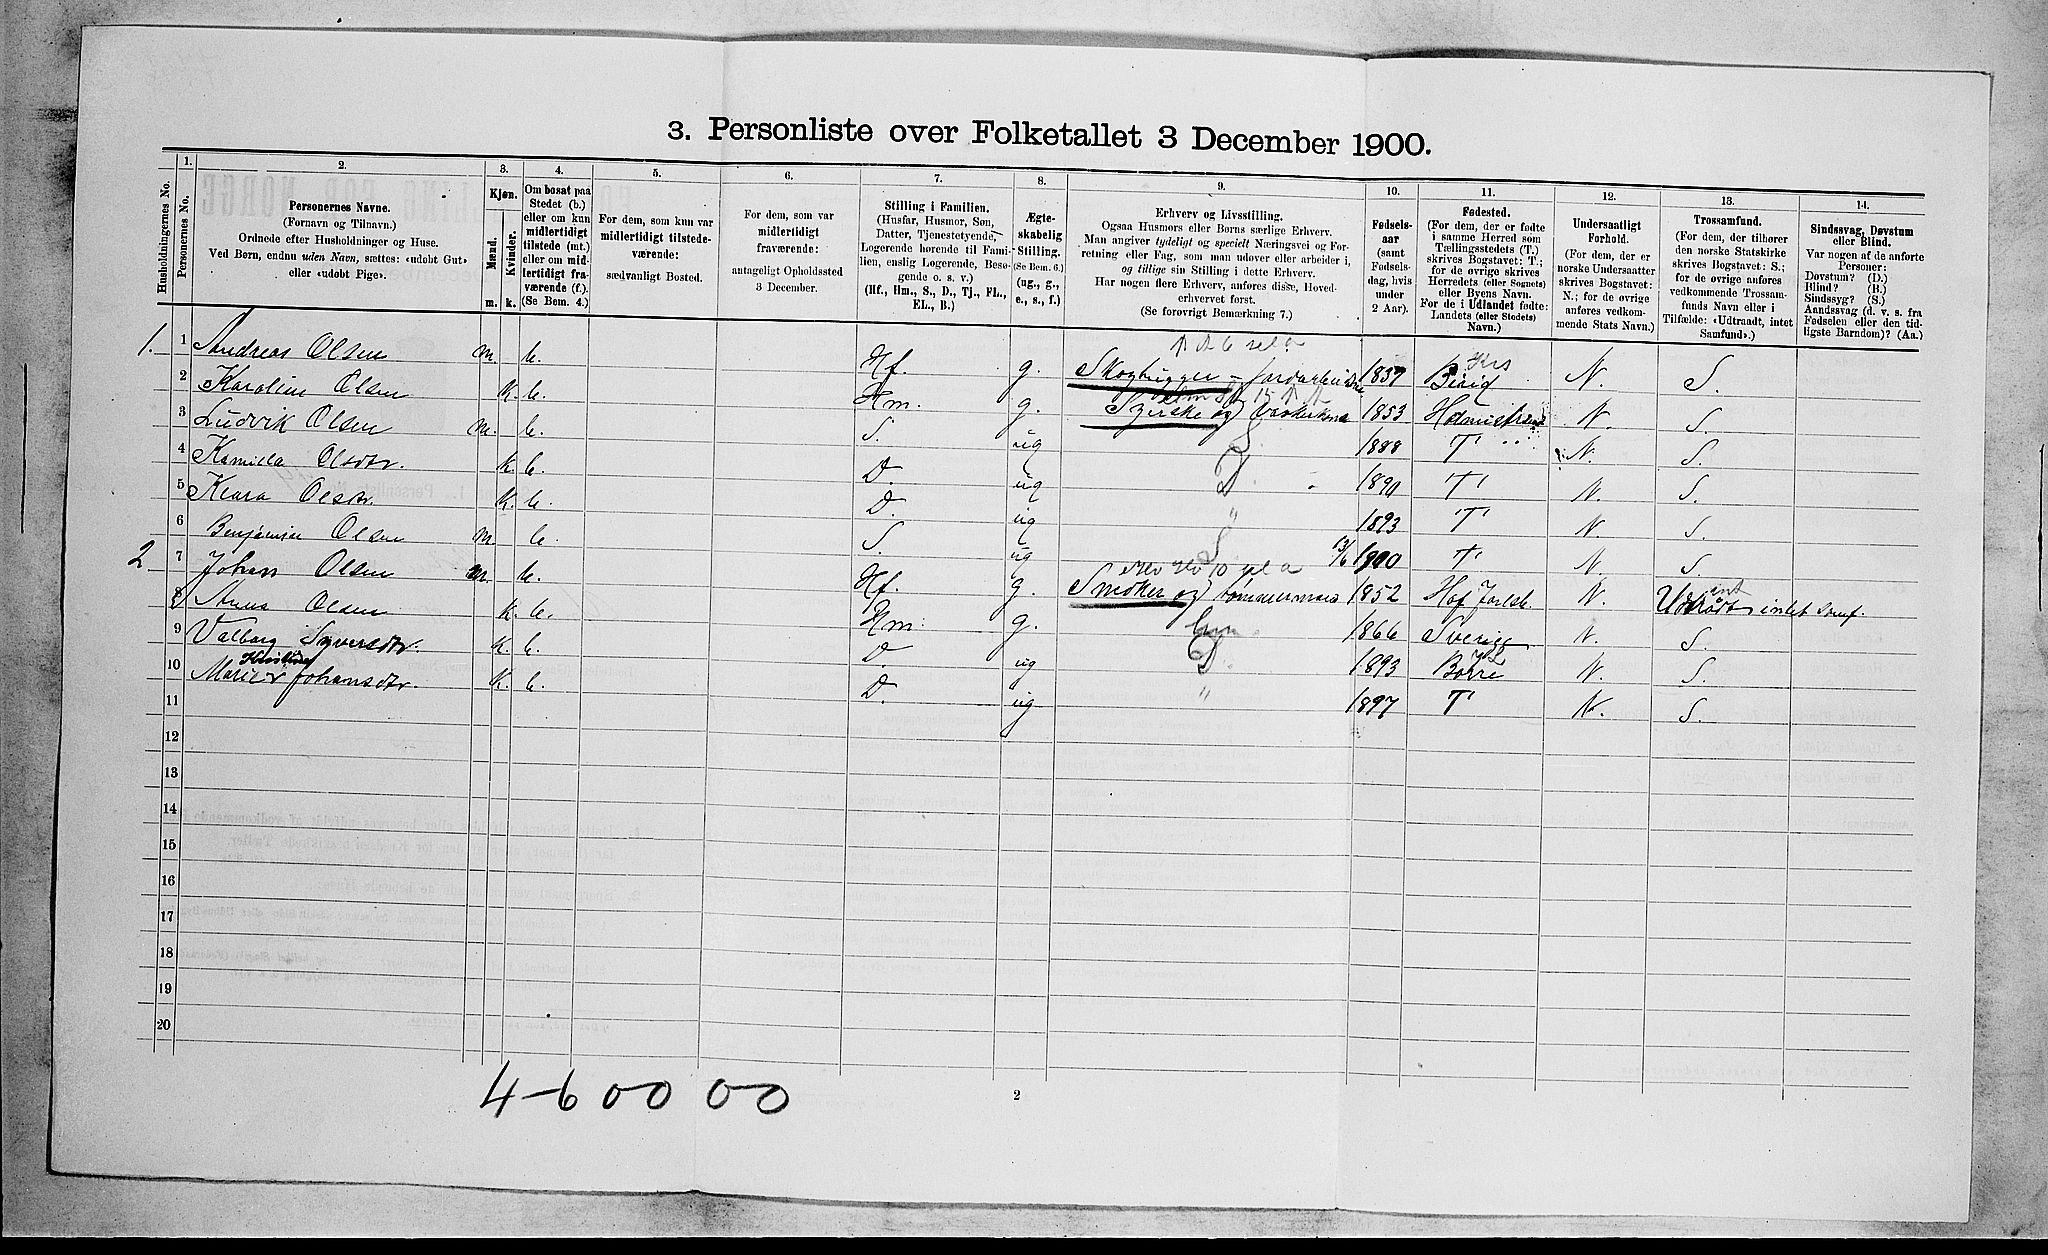 3. Personliste over Folketallet 3 December 1900.
Husholdningernes No.
1.
Personernes No.
2.
Personernes Navne.
(Fornavn og Tilnavn.)
Ordnede efter Husholdninger og Huse.
Ved Børn, endnu uden Navn, sættes: «udøbt Gut»
eller «udøbt Pige».
3.
Kjøn.
Mænd.
Kvinder.
m.
k.
4.
Om bosat paa
Stedet (b.)
eller om kun
midlertidigt
tilstede (mt.)
eller om mid-
lertidigt fra-
værende (f.).
(Se Bem. 4.)
5.
For dem, som kun var
midlertidigt tilstede-
værende:
sædvanligt Bosted.
6.
For dem, som var
midlertidigt
fraværende:
antageligt Opholdssted
3 December.
7.
Stilling i Familien.
(Husfar, Husmor, Søn,
Datter, Tjenestetyende,
Logerende hørende til Fami-
lien, enslig Logerende, Besø-
gende o. s. v.)
(Hf., Hm., S., D., Tj., FL.,
EL., B.)
8.
Ægte-
skabelig
Stilling.
(Se Bem. 6.)
(ug., g.,
e., s., f.)
9.
Erhverv og Livsstilling.
Ogsaa Husmors eller Børns særlige Erhverv.
Man angiver tydeligt og specielt Næringsvei og For-
retning eller Fag, som man udøver eller arbeider i,
og tillige sin Stilling i dette Erhverv.
Har nogen flere Erhverv, anføres disse, Hoved-
erhvervet først.
(Se forøvrigt Bemærkning 7.)
10.
Fødsels-
aar
(samt
Fødsels-
dag, hvis
under
2 Aar).
11.
Fødested.
(For dem, der er fødte
i samme Herred som
Tællingsstedets (T.)
skrives Bogstavet: T.;
for de øvrige skrives
Herredets (eller Sognets)
eller Byens Navn.
For de i Udlandet fødte:
Landets (eller Stedets)
Navn.)
12.
Undersaatligt
Forhold.
(For dem, der er
norske Undersaatter
skrives Bogstavet:
N.; for de øvrige
anføres vedkom-
mende Stats Navn.)
13.
Trossamfund.
(For dem, der tilhører
den norske Statskirke
skrives Bogstavet: S.;
for de øvrige anføres
vedkommende Trossam-
funds Navn eller i
Tilfælde: «Udtraadt, intet
Samfund».)
14.
Sindssvag, Døvstum
eller Blind.
Var nogen af de anførte
Personer:
Døvstum? (D.)
Blind? (B.)
Sindssyg? (S.)
Aandssvag (d. v. s. fra
Fødselen eller den tid-
ligste Barndom)? (Aa.)
1. 1 Andreas Olsen m. b. Hf. g. Skoghugger - Jordarbeider 1837 Birid N. S.
2 Karoline Olsen k. b. Hm. g. Syerske og Vaskekone 1853 Holmestrand N. S.
3 Ludvik Olsen m. b. S. ug S. 1888 T " N. S.
4 Kamilla Olsdtr. k. b. D. ug D. 1890 T N. S.
5 Klara Olsdtr k. b. D. ug " 1893 T N. S.
6 Benjamin Olsen m b. S. ug S 13/6 1900 T N. S.
2 7 Johan Olsen m. b. Hf. g. Snedker og Tømmermand 1852 Hof Jarlsb. N. Udtrådt intet samf.
8 Anna Olsen k. b. Hm. g. hm. 1866 Sverige N. S.
9 Valborg Syversdtr. k. b. D. ug D. 1893 Borre N. S.
10 Marie Kristine Johansdtr. k. b. D. ug " 1897 T N. S.
11
12
13
14
15
16
17
18
19
20
4-6 00 00
2